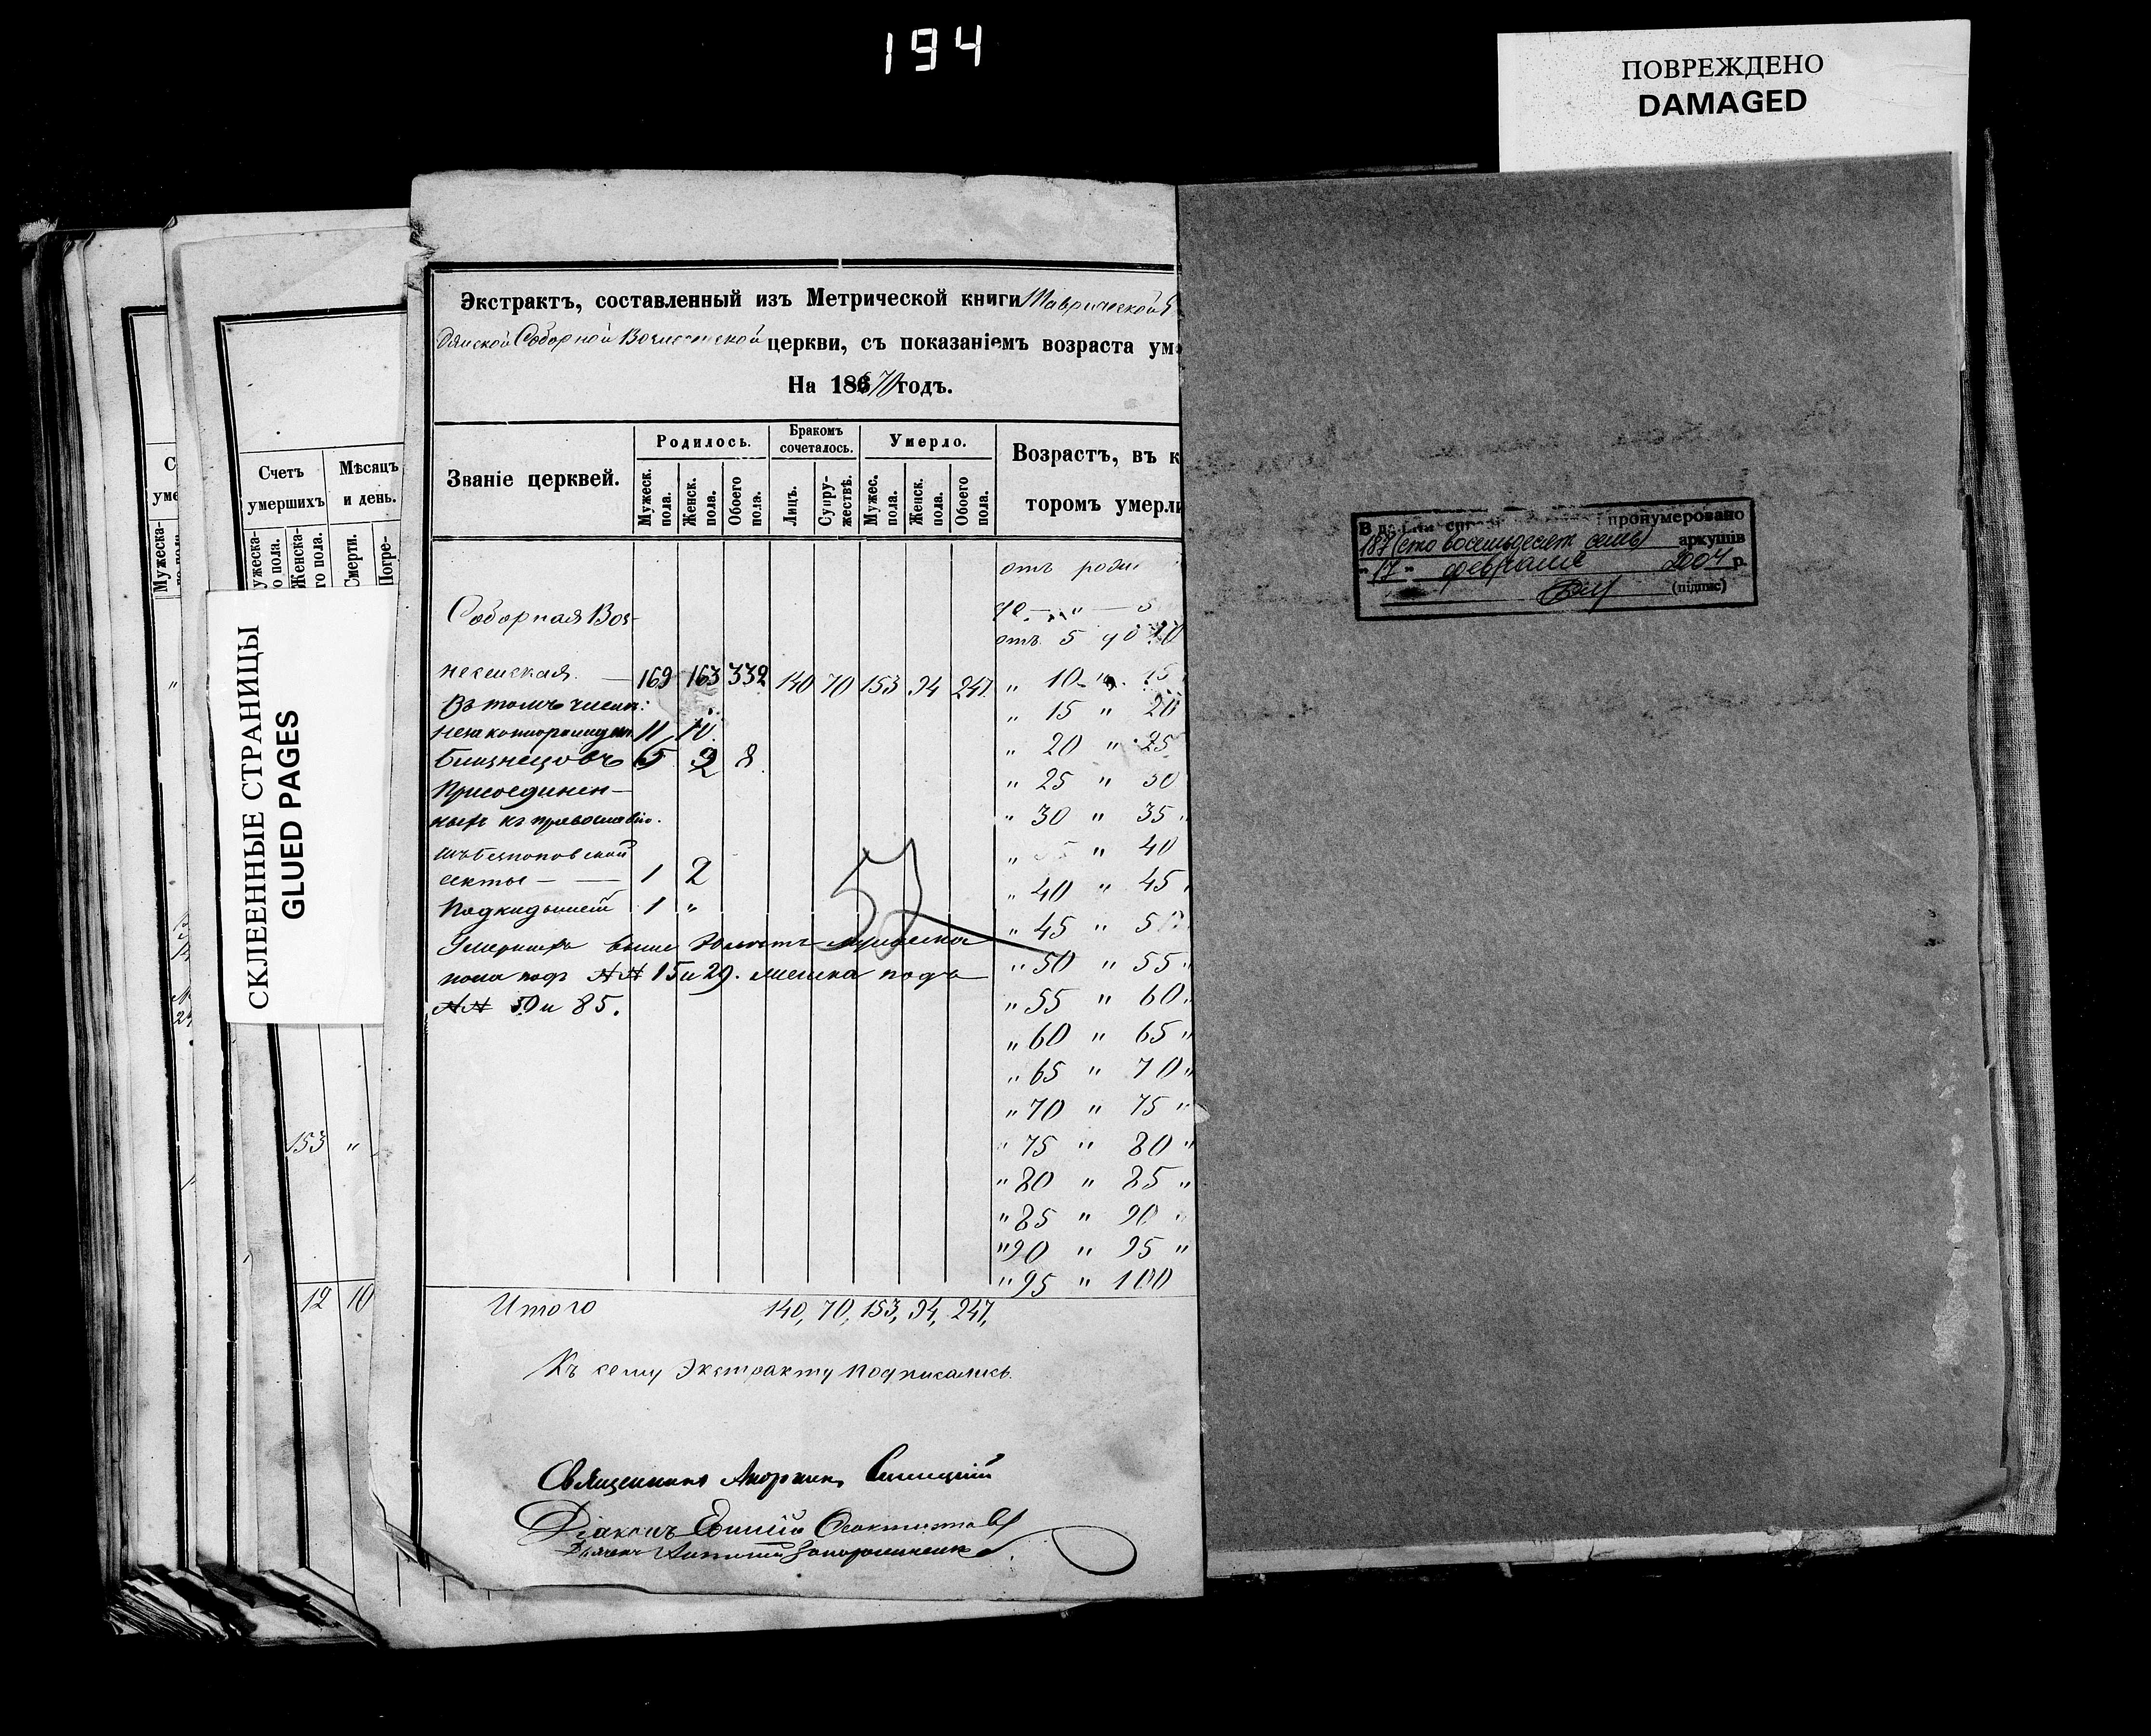 194
ПОВРЕЖДЕНО
DAMAGED
СКЛЕЕННЫЕ СТРАНИЦЫ
GLUED PAGES
Счетъ
умершихъ
Мѣсяцъ
и день.
Мужеска-
Женска-
го пола.
Смерти.
Погре-
153 "
12 10
Экстрактъ, составленный изъ Метрической книги Таврической
Соборной церкви, съ показаніемъ возраста ум
На 1870 годъ.
Званіе церквей.
Родилось.
Бракомъ
сочеталось.
Умерло.
Возрастъ, въ к
торомъ умерли
Мужеск. пола.
Женск. пола.
Обоего пола.
Лицъ.
Супру-
жествъ.
Мужес. пола.
Женск. пола.
Обоего пола.
отъ
до " 5
отъ 5 до 10
Соборная Воз-
несенская. 169 163 332 140 70 153 94 247 " 10 " 15
Въ томъ числѣ: " 15 " 20
незаконнорожден 11 10 " 20 " 25
близнецовъ 6 2 8 " 25 " 30
Присоединен- " 30 " 35
ныхъ къ православію. " " 40
изъ безпоповской
секты — 1 2 " 40 " 45
Подкидышей 1 " " 45 " 50
57
Умершихъ выше мужеска
пола подъ №№ 15 и 29. женска подъ
№№ 50 и 85.
" 50 " 55 "
" 55 " 60 "
" 60 " 65 "
" 65 " 70 "
" 70 " 75 "
" 75 " 80 "
" 80 " 85 "
" 85 " 90 "
" 90 " 95 "
" 95 " 100
Итого 140, 70, 153, 94, 247,
Къ сему Экстракту подписались.
Священникъ
Діаконъ Феоктистовъ
пронумеровано
187 (сто восемьдесят семь) аркушів
" 17 " февраля 2004 р.
(підпис)